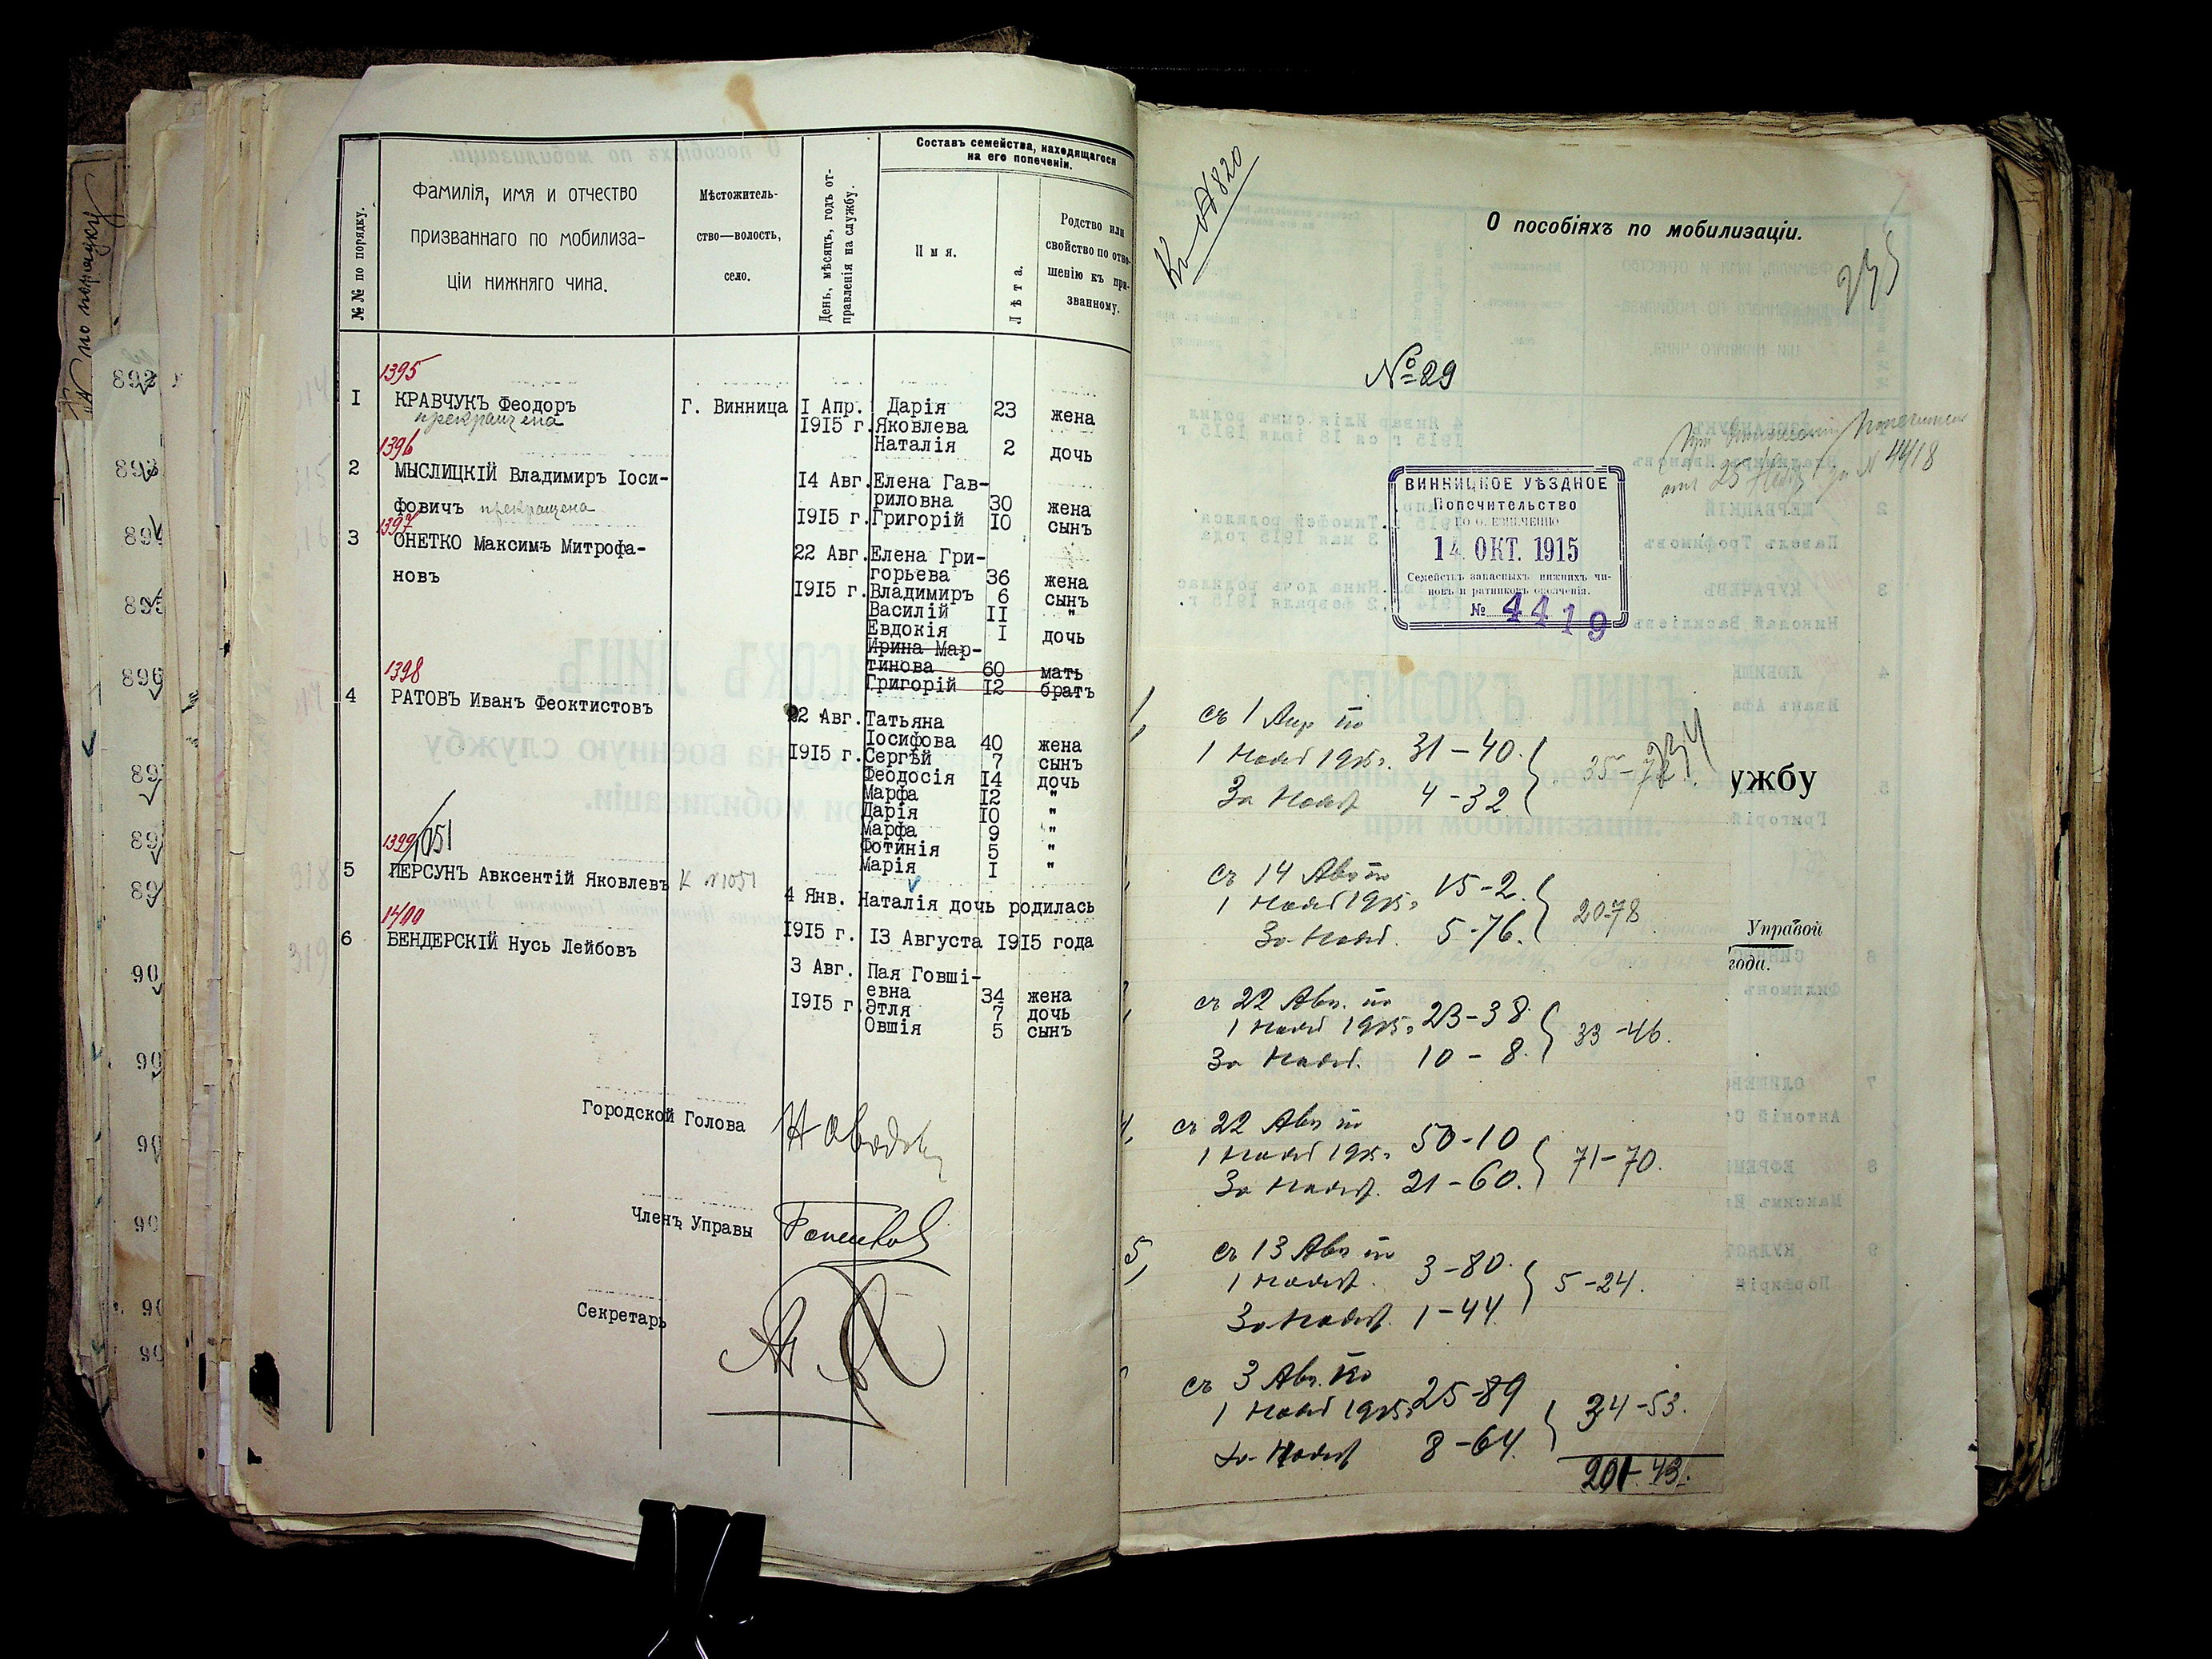 №№ по порядку.
Фамилія, имя и отчество
призваннаго по мобилиза-
ціи нижняго чина.
Мѣстожитель-
ство—волость,
село.
День, мѣсяцъ, годъ от-
правленія на службу.
Составъ семейства, находящагося
на его попеченіи.
Имя.
Лѣта.
Родство или
свойство по отно-
шенію къ при-
званному.
1395
I КРАВЧУКЪ Феодоръ Г. Винница I Апр. Дарія 23 жена
прекращена 1915 г. Яковлева
Наталія 2 дочь
1396
2 МЫСЛИЦКІЙ Владимиръ Іоси- 14 Авг. Елена Гав-
риловна 30 жена
фовичъ прекращена 1915 г. Григорій 10 сынъ
1397
3 ОНЕТКО Максимъ Митрофа- 22 Авг. Елена Гри-
новъ горьева 36 жена
1915 г. Владимиръ 6 сынъ
Василій II "
Евдокія I дочь
Ирина Мар-
тинова 60 мать
Григорій 12 братъ
1398
4 РАТОВЪ Иванъ Феоктистовъ 22 Авг. Татьяна
Іосифова 40 жена
1915 г. Сергѣй 7 сынъ
Феодосія 14 дочь
Марфа 12 "
Дарія 10 "
Марфа 9 "
Фотинія 5 "
Марія I "
1399/1051
5 ПЕРСУНЪ Авксентій Яковлевъ К №1051 4 Янв. Наталія дочь родилась
1915 г. 13 Августа 1915 года
1400
6 БЕНДЕРСКІЙ Нусь Лейбовъ 3 Авг. Пая Говші-
евна 34 жена
1915 г. Этля 7 дочь
Овшія 5 сынъ
Городской Голова
Членъ Управы
Секретарь
820
О пособіяхъ по мобилизаціи.
235
№ 29
25 № 4418
ВИННИЦКОЕ УѢЗДНОЕ
Попечительство
по призрѣнію
14 ОКТ. 1915
Семействъ запасныхъ нижнихъ чи-
новъ и ратниковъ ополченія.
№ 4419
234
1, съ 1 Апр по
1 Нояб 1915 г. 31-40. 35-72.
За Нояб 4-32
съ 14 Авг по
1 Нояб 1915 г. 15-2. 20-78
За Нояб. 5-76.
съ 22 Авг. по
1 Нояб 1915 г. 23-38. 33-46.
За Нояб. 10-8.
4, съ 22 Авг по
1 Нояб 1915 г. 50-10 71-70.
За Нояб. 21-60.
5, съ 13 Авг по
1 Нояб. 3-80. 5-24.
За Нояб. 1-44.
съ 3 Авг. по
1 Нояб 1915 г. 25-89 34-53.
За Нояб 8-64.
201-43.
ужбу
Управой
года.